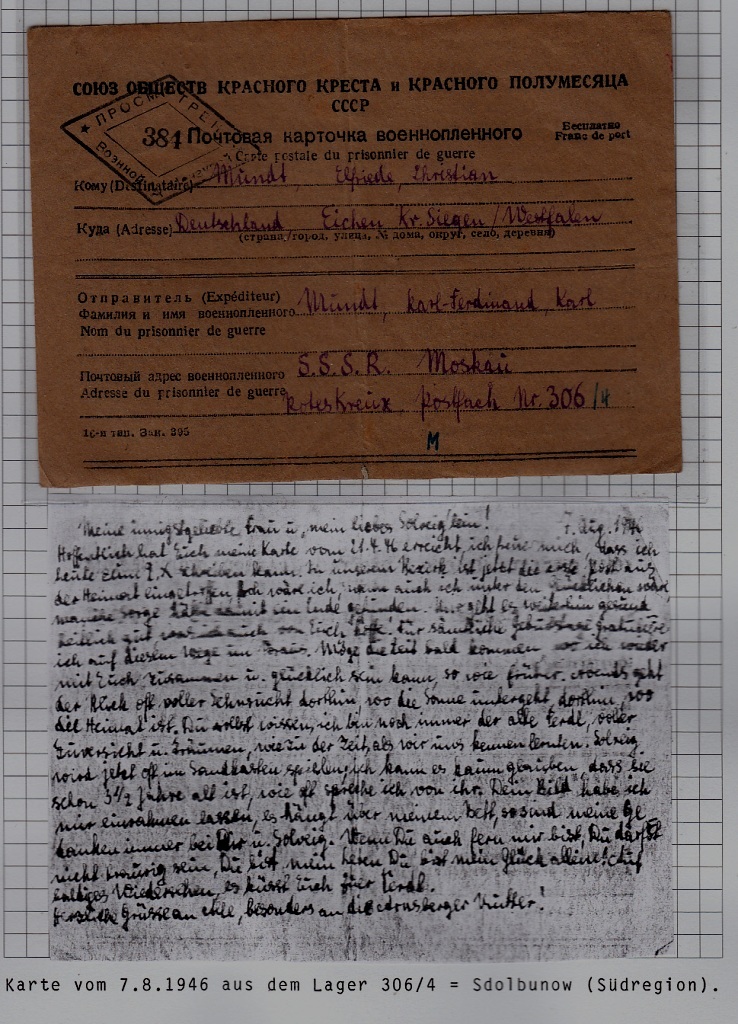 СОЮЗ ОБЩЕСТВ КРАСНОГО КРЕСТА и КРАСНОГО ПОЛУМЕСЯЦА
СССР
ПРОСМОТРЕНО
Военной
384
Почтовая карточка военнопленного
Бесплатно
Franc de port
Carte postale du prisonnier de guerre
Кому (Destinataire) Mundt, Elfriede, Christian
Куда (Adresse) Deutschland, Eichen Kr. Siegen / Westfalen
(страна, город, улица, № дома, округ, село, деревня)
Отправитель (Expéditeur)
Фамилия и имя военнопленного Mundt, Karl-Ferdinand, Karl
Nom du prisonnier de guerre
Почтовый адрес военнопленного S.S.S.R. Moskau
Adresse du prisonnier de guerre Roteskreuz, Postfach Nr. 306/4
16-я тип. Зак. 395
M
Meine innigstgeliebte Frau u. mein liebes Solveiglein! 7. Aug. 1946
Hoffentlich hat Euch meine Karte vom 21.4.46 erreicht, ich freue mich, dass ich
heute schreiben kann. In unserem Bezirk ist jetzt die erste Post aus
der Heimat eingetroffen, wäre ich, wenn auch ich unter den Glücklichen wäre
manche Sorge hätte damit ein Ende gefunden. Mir geht es weiterhin gesund
heitlich gut was auch von Euch hoffe. Für sämtliche Geburtstage gratuliere
ich auf diesem Wege im Voraus. Möge die Zeit bald kommen wo ich wieder
mit Euch zusammen u. glücklich sein kann, so wie früher. Abends geht
der Blick oft voller Sehnsucht dorthin, wo die Sonne untergeht, dorthin, wo
die Heimat ist. Du sollst wissen, ich bin noch immer der alte Ferdl, voller
Zuversicht u. Träumen, wie in der Zeit, als wir uns kennen lernten. Solveig
wird jetzt oft im Sandkasten spielen, ich kann es kaum glauben, dass sie
schon 3 1/2 Jahre alt ist, wie oft spreche ich von ihr. Dein Bild habe ich
mir einrahmen lassen, es hängt über meinem Bett, so sind meine Ge
danken immer bei Dir u. Solveig. Wenn Du auch fern mir bist, Du darfst
nicht traurig sein, Du bist mein Leben Du bist mein Glück alleine! Auf
baldiges Wiedersehen, es küsst Euch Euer Ferdl.
Herzliche Grüsse an alle, besonders an die Arnsberger Mutter!
Karte vom 7.8.1946 aus dem Lager 306/4 = Sdolbunow (Südregion).